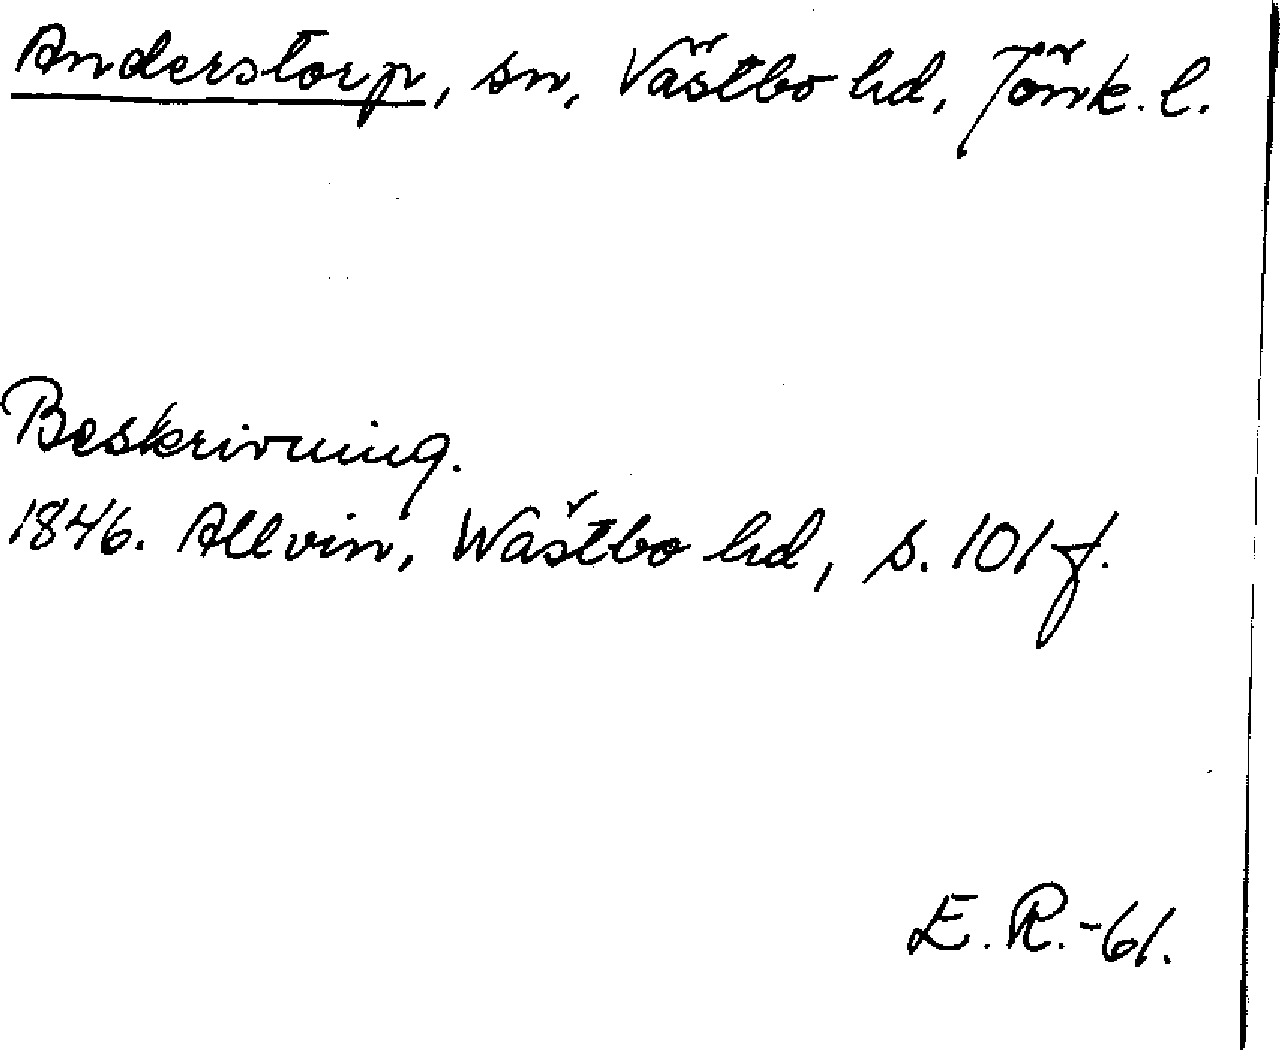 Anderstorp, sn, Västbo hd, Jönk. l.
Beskrivning.
1846. Allvin, Wästbo hd, s. 101 f.
E. R. -61.